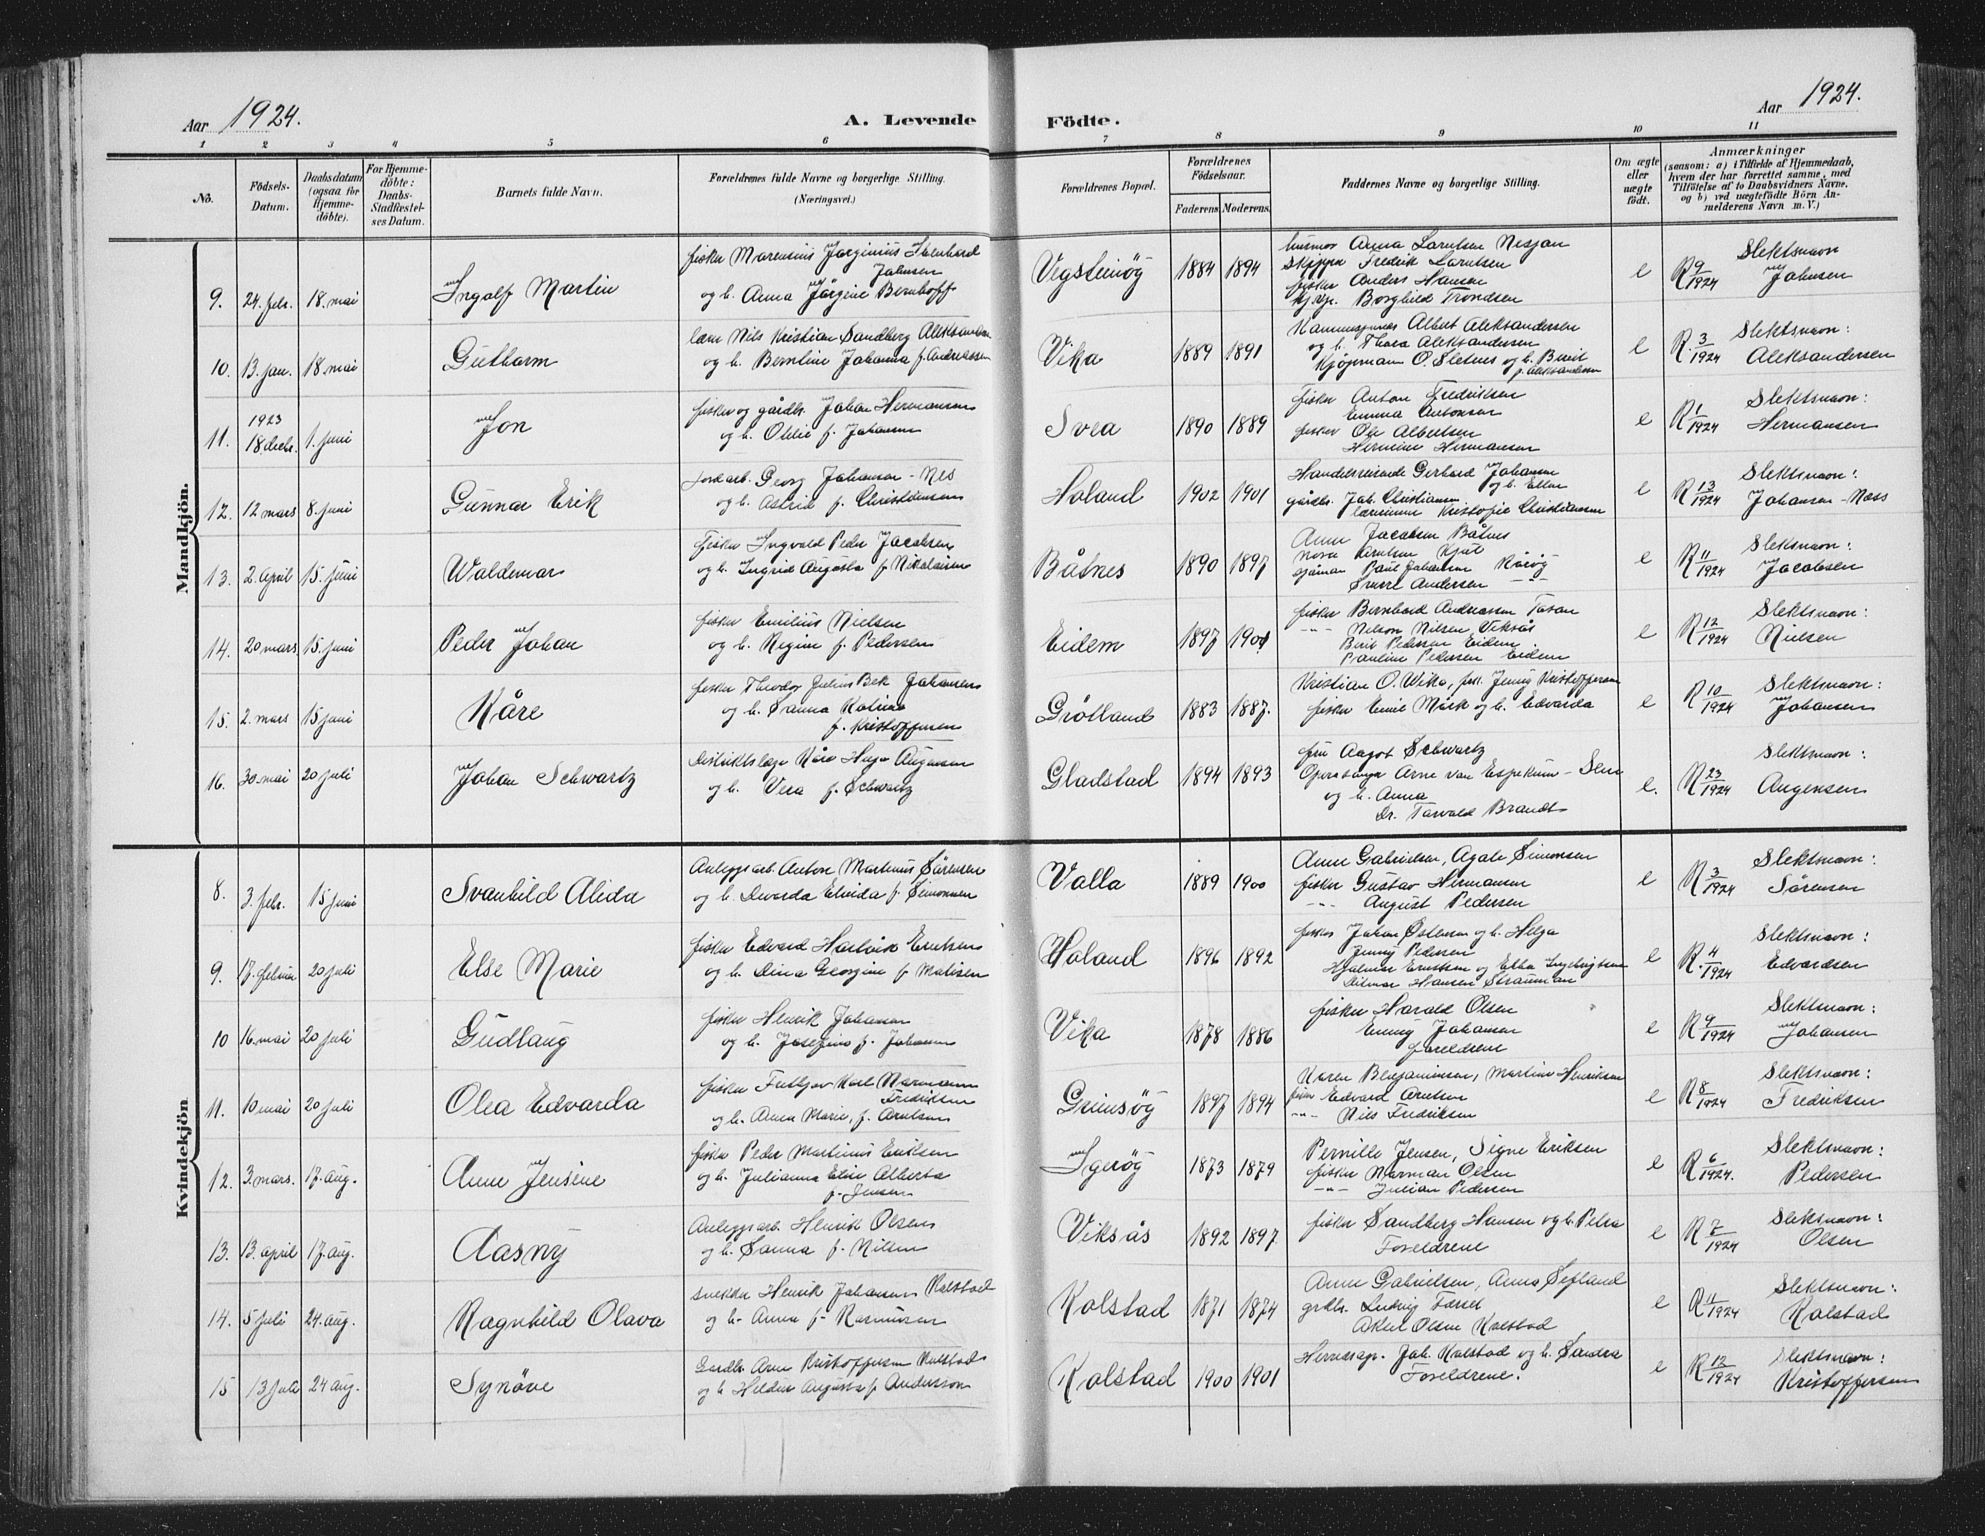 Aar 1924.
A. Levende Födte.
Aar 1924.
1 2 3 4 5 6 7 8 9 10 11
No.
Födsels-Datum.
Daabsdatum (ogsaa for Hjemmedöbte).
For Hjemmedöbte: Daabs-Stadfæstelses Datum.
Barnets fulde Navn.
Forældrenes fulde Navne og borgerlige Stilling. (Næringsvei.)
Forældrenes Bopæl.
Forældrenes Födselsaar.
Faderens. Moderens.
Faddernes Navne og borgerlige Stilling.
Om ægte eller uægte födt.
Anmærkninger
(saasom: a) i Tilfælde af Hjemmedaab, hvem der har forrettet samme, med Tilföielse af to Daabsvidners Navne, og b) ved uægtefödte Börn Anmelderens Navn m. V.)
Mandkjön.
9. 24. febr. 18. mai Ingolf Martin
fisker Marensius Jørginius Ikenhard
Johnsen
og h. Anna Jørgine Bernhoff
Vegsteinöy 1884 1894
husmor Anna Larntsen Nesjan
Skipper Fredrik Larntsen
fisker Anders Hansen
Borghild Trondsen
e R 9/1924 Slektsnavn Johnsen
10. 13. jan. 18 mai Guthorm
lærer Nils Kristian Sandberg Aleksandersen
og h. Berntine Johanna f. Andreassen
Vika 1889 1891
Albert Aleksandersen
og h. Thora Aleksandersen
Kjøpmann O. Sletnes og h. Berit
f. Aleksandersen
e R. 3/1924 Slektsnavn: Aleksandersen
11. 1923 18 decbr. 1. juni Jon
fisker og gårdbr. Johan Hermansen
og h. Oddie f. Johansen
Svea 1890 1889
fisker Anton Fredriksen
Emma Antonsen
fisker Ole Albertsen
Hermine Hermansen
e R 1/1924 Slektsnavn: Hermansen
12. 12 mars 8. juni Gunnar Erik
jordarb. Georg Johansen - Nes
og h. Astrid f. Christiansen
Holand 1902 1901
Handelsreisende Gerhard Johansen
og h. Ellen
gårdbr. Joh. Christiansen
lærerinne Kristofie Christiansen
e R 13/1924 Slektsnavn: Johansen - Næss
13. 2. april 15. juni Waldemar
fisker Ingvald Peder Jacobsen
og h. Ingrid Augusta f. Nikolaisen
Båtnes 1890 1897
Anne Jacobsen Båtnes
Nora Arntsen Kjul
sjøman Paul Johansen Råöy
Sverre Andersen -"-
e R 11/1924 Slektsnavn: Jacobsen
14. 20 mars 15. juni Peder Johan
fisker Emilius Nielsen
og h. Regine f. Pedersen
Eidem 1897 1901
fisker Bernhard Andreassen Tosan
-"- Nelson Nilsen Viksås
Berit Pedersen Eidem
Pauline Pedersen Eidem
e R 12/1924 Slektsnavn: Nielsen
15. 2. mars 15 juni Kåre
fisker Theodor Julius Bek Johansen
og h. Sanna Katrine
f. Kristoffersen
Grötland 1883 1887.
Kristian O. Wika, frk. Jenny Kristoffersen
fisker Emil Mörk og h. Edvarda
e R 10/1924 Slektsnavn: Johansen
16. 30 mai 20 juli Johan Schwartz
Distriktslæge Kåre Helge Augensen
og h. Vera f. Schwartz
Gladstad 1894 1893
fru Aagot Schwartz
Operasanger Arne van Erpekum - Sem
og h. Anna
Dr. Torvald Brandt
e. R 23/1924 Slektsnavn: Augensen
Kvindekjön
8. 3. febr. 15 juni Svanhild Alida
Anleggsarb. Anton Martinus Sörensen
og h. Devarda Elvida f. Simonsen
Valla 1889 1900
Anne Gabrielsen, Agate Simonsen
fisker Gustav Hermansen
-"- August Pedersen
e R 3/1924 Slektsnavn: Sörensen
9. 17. februar 20 juli Else Marie
fisker Edvard Hartvik Erntsen
og h. Dina Georgine f. Matisen
Holand 1896 1892
fisker Johan Östensen og h. Helga
Jenny Pedersen
Hjalmar Erntsen og Ebba Ingebrigtsen
Ditmar Hansen Strauman
e R. 4/1924 Slektsnavn: Edvardsen
10 16. mai 20 juli Gudlaug
fisker Henrik Johansen
og h. Josefine f. Johansen
Vika 1878 1886
fisker Harald Olsen
Emmy Johansen
foreldrene
e R 9/1924 Slektsnavn: Johansen
11. 10 mai 20 juli Olea Edvarda
fisker Fritljov Karl Normann
Fredriksen
og h. Anna Marie, f. Arntsen
Grimsöy 1897 1894
Karen Benjaminsen, Martine Henriksen
fisker Edvard Arntsen
-"- Nils Fredriksen
e R 8/1924 Slektsnavn: Fredriksen
12. 3. mars. 17. aug. Anne Jensine
fisker Peder Martinus Eriksen
og h. Julianna Elise Alberta
f. Jensen
Igeröy 1873 1879
Pernille Jensen, Signe Eriksen
fisker Norman Olsen
-"- Julian Pedersen
e R 6/1924. Slektsnavn: Pedersen
13. 13. april 17. aug. Aasny
Anleggsarb. Henrik Olsen
og h. Sanna f. Nilsen
Viksås 1892 1897
fisker Sandberg Hansen og h. Petra
Foreldrene
e R 7/1924 Slektsnavn: Olsen
14. 5 juli 24. aug. Ragnhild Olava
snekker Henrik Johansen Kolstad
og h. Anna f. Rasmussen
Kolstad 1871 1874
Anne Gabrielsen, Anna Sefland
grdbr. Ludvig Forset
Aksel Olsen Kolstad
e R 11/1924 Slektsnavn: Kolstad
15 13 juli 24 aug. Synöve
Gardb. Arne Kristoffersen Kolstad
og h. Heldur Augusta f. Anderssen
Kolstad 1900 1901
Herredsagr. Joh. Kolstad og h. Sandra
Foreldrene.
e R 12/1924 Slektsnavn: Kristoffersen